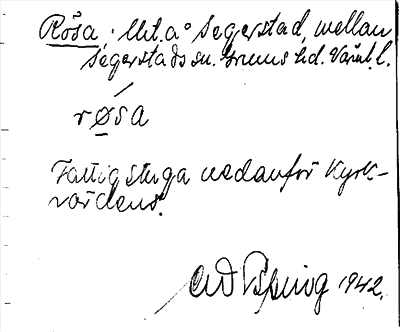 Rösa, Utt. a° Segerstad, mellan
Segerstads sn. Grums hd. Värml. l.
røsa
Fattigstuga nedanför Kyrk-
värdens.
1942.